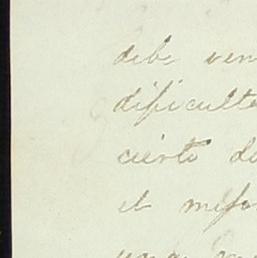 debe ven
dificulta
cierto d
el mejo